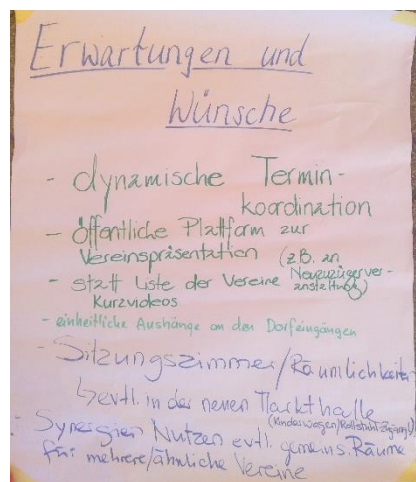 Erwartungen und
Wünsche
- dynamische Termin-
koordination
- öffentliche Plattform zur
Vereinspräsentation (z.B. an
Neuzuzügerver-
- statt Liste der Vereine anstaltung)
Kurzvideos
- einheitliche Aushänge an den Dorfeingängen
- Sitzungszimmer/Räumlichkeiten
↳ evtl. in der neuen Markthalle
(Kinderwagen/Rollstuhl Zugang!)
- Synergien Nutzen evtl. gemeins. Räume
für mehrere/ähnliche Vereine